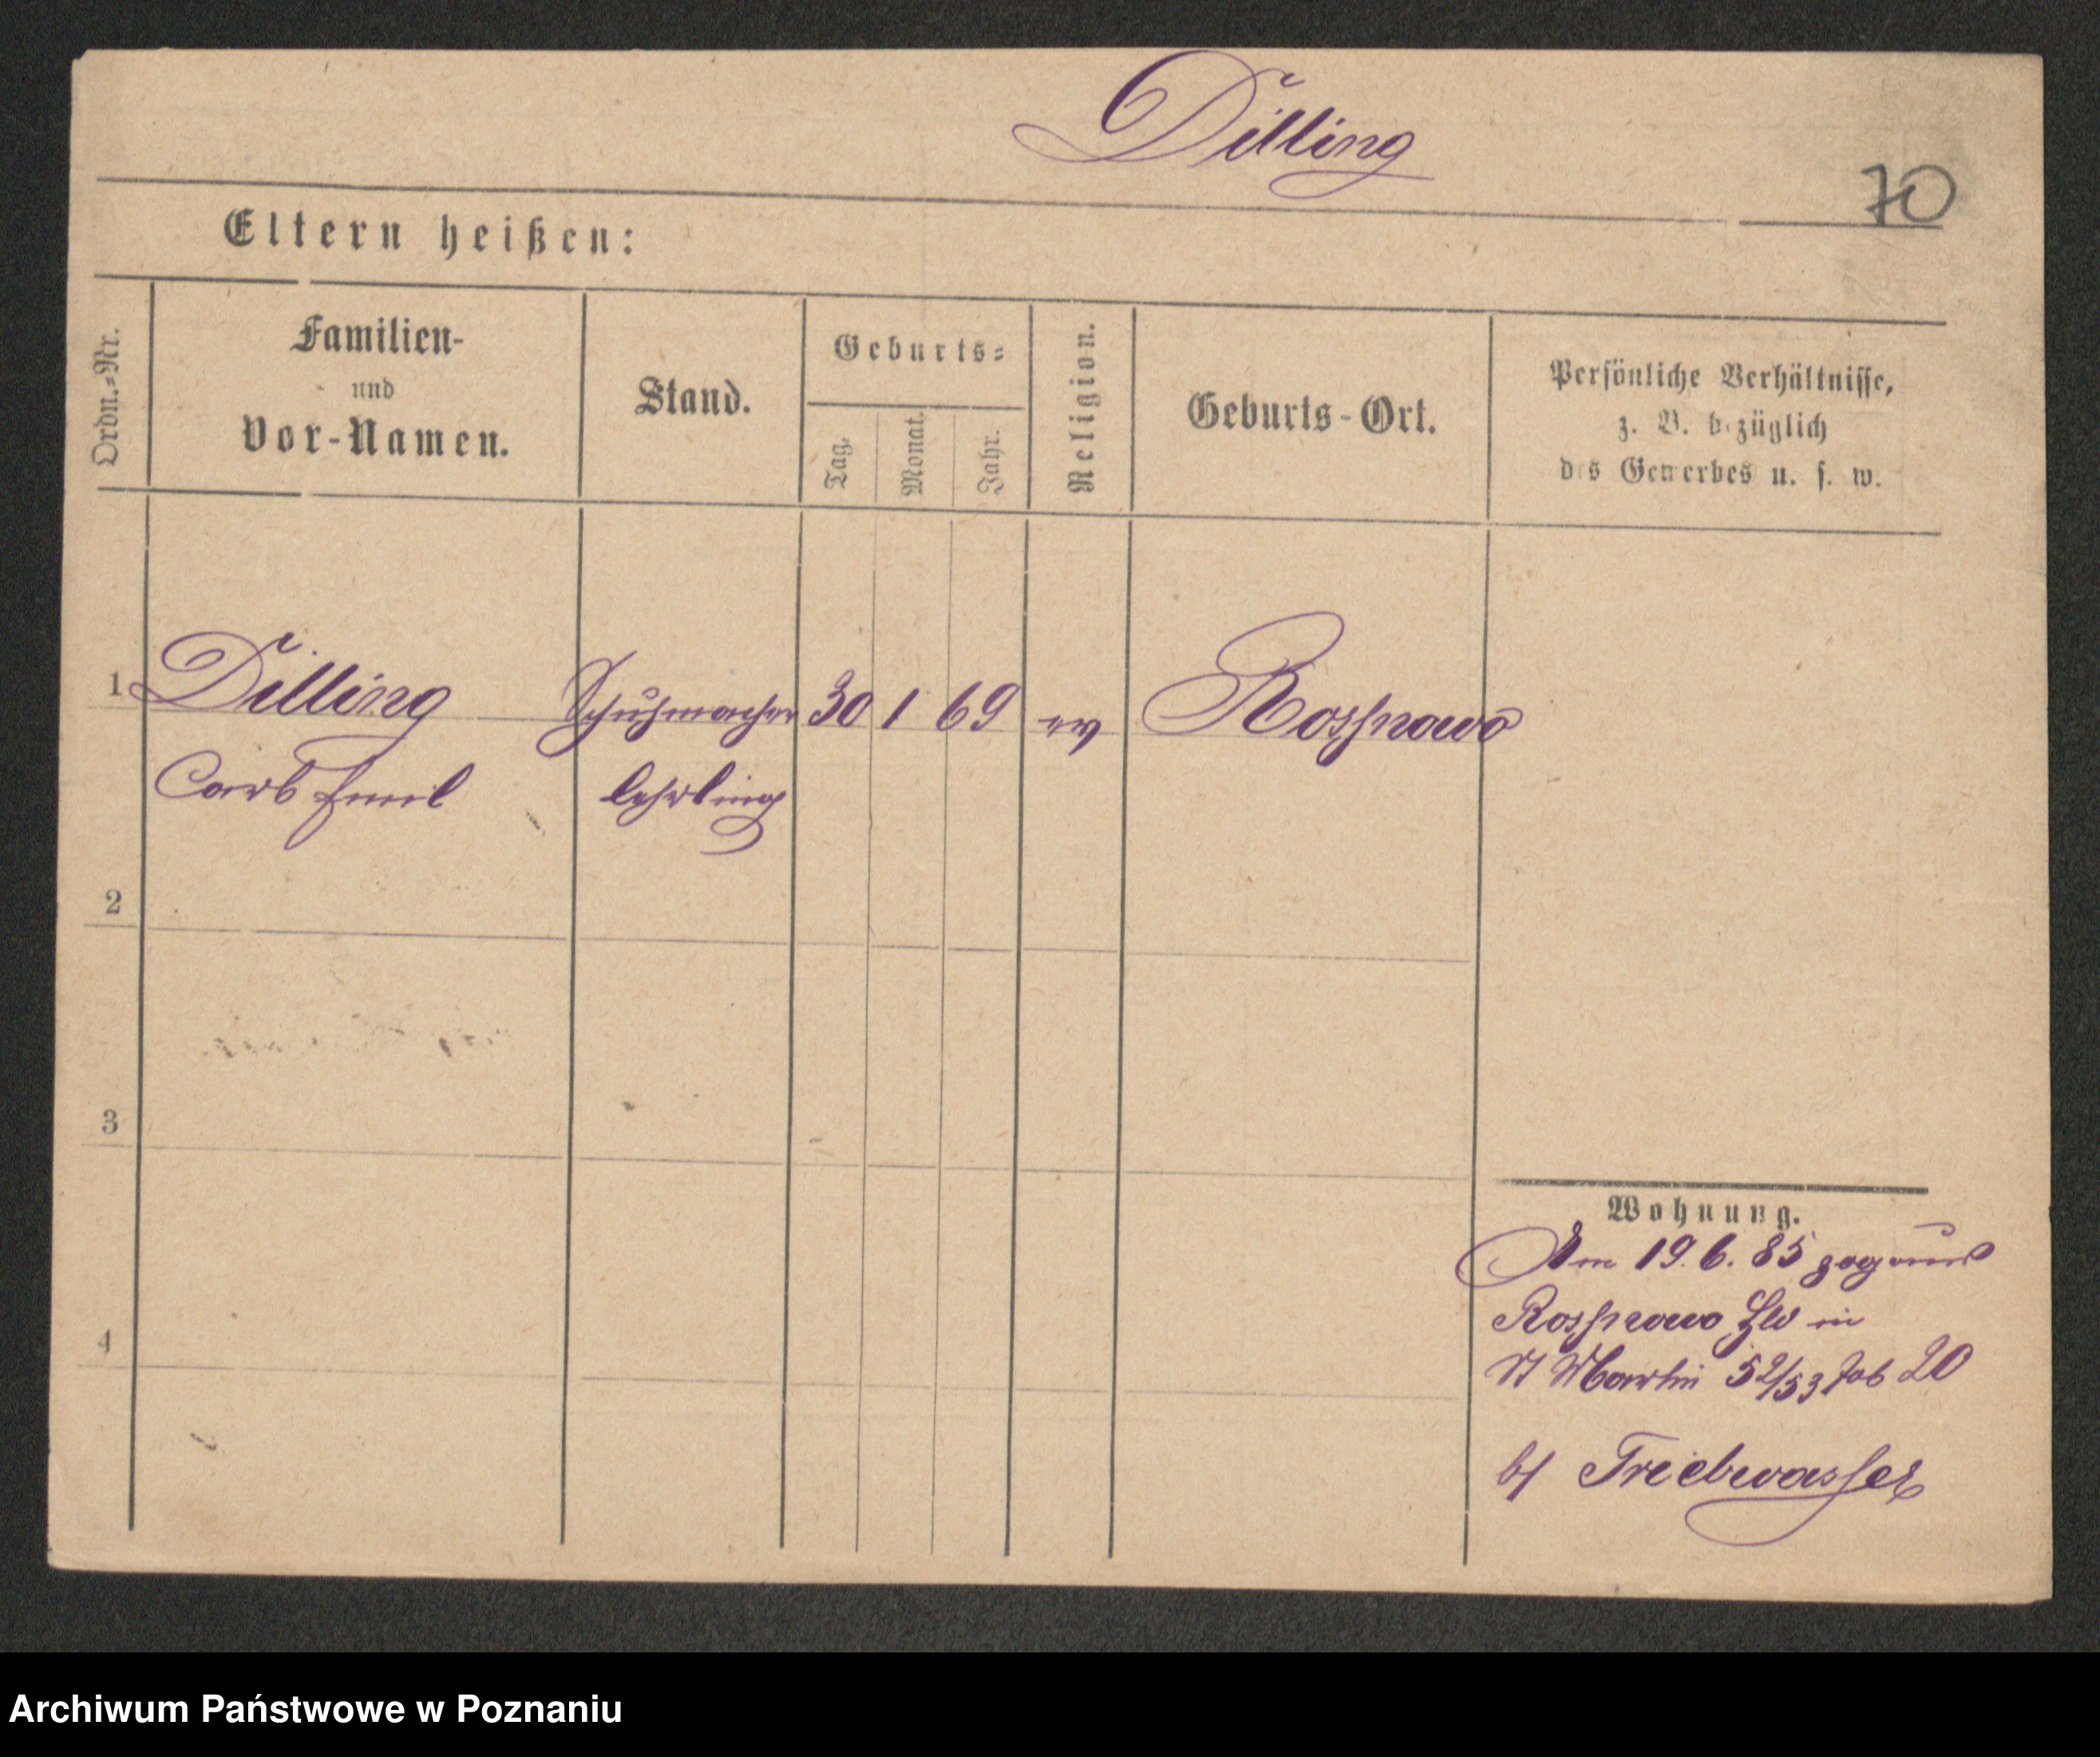 Dilling
70
Eltern heißen:
Ordn.-Nr.
Familien-
und
Vor-Namen.
Stand.
Geburts-
Tag.
Monat.
Jahr.
Religion.
Geburts-Ort.
Persönliche Verhältnisse,
z. B. bezüglich
des Gewerbes u. s. w.
1 Dilling Schuhmacher 30 1 69 ev Rosnowo
Carl Emil lehrling
2
3
4
Wohnung.
Am 19. 6. 85 zog aus
Rosnowo in
St Martin 52/53 20
b/ Triebwasser
Archiwum Państwowe w Poznaniu